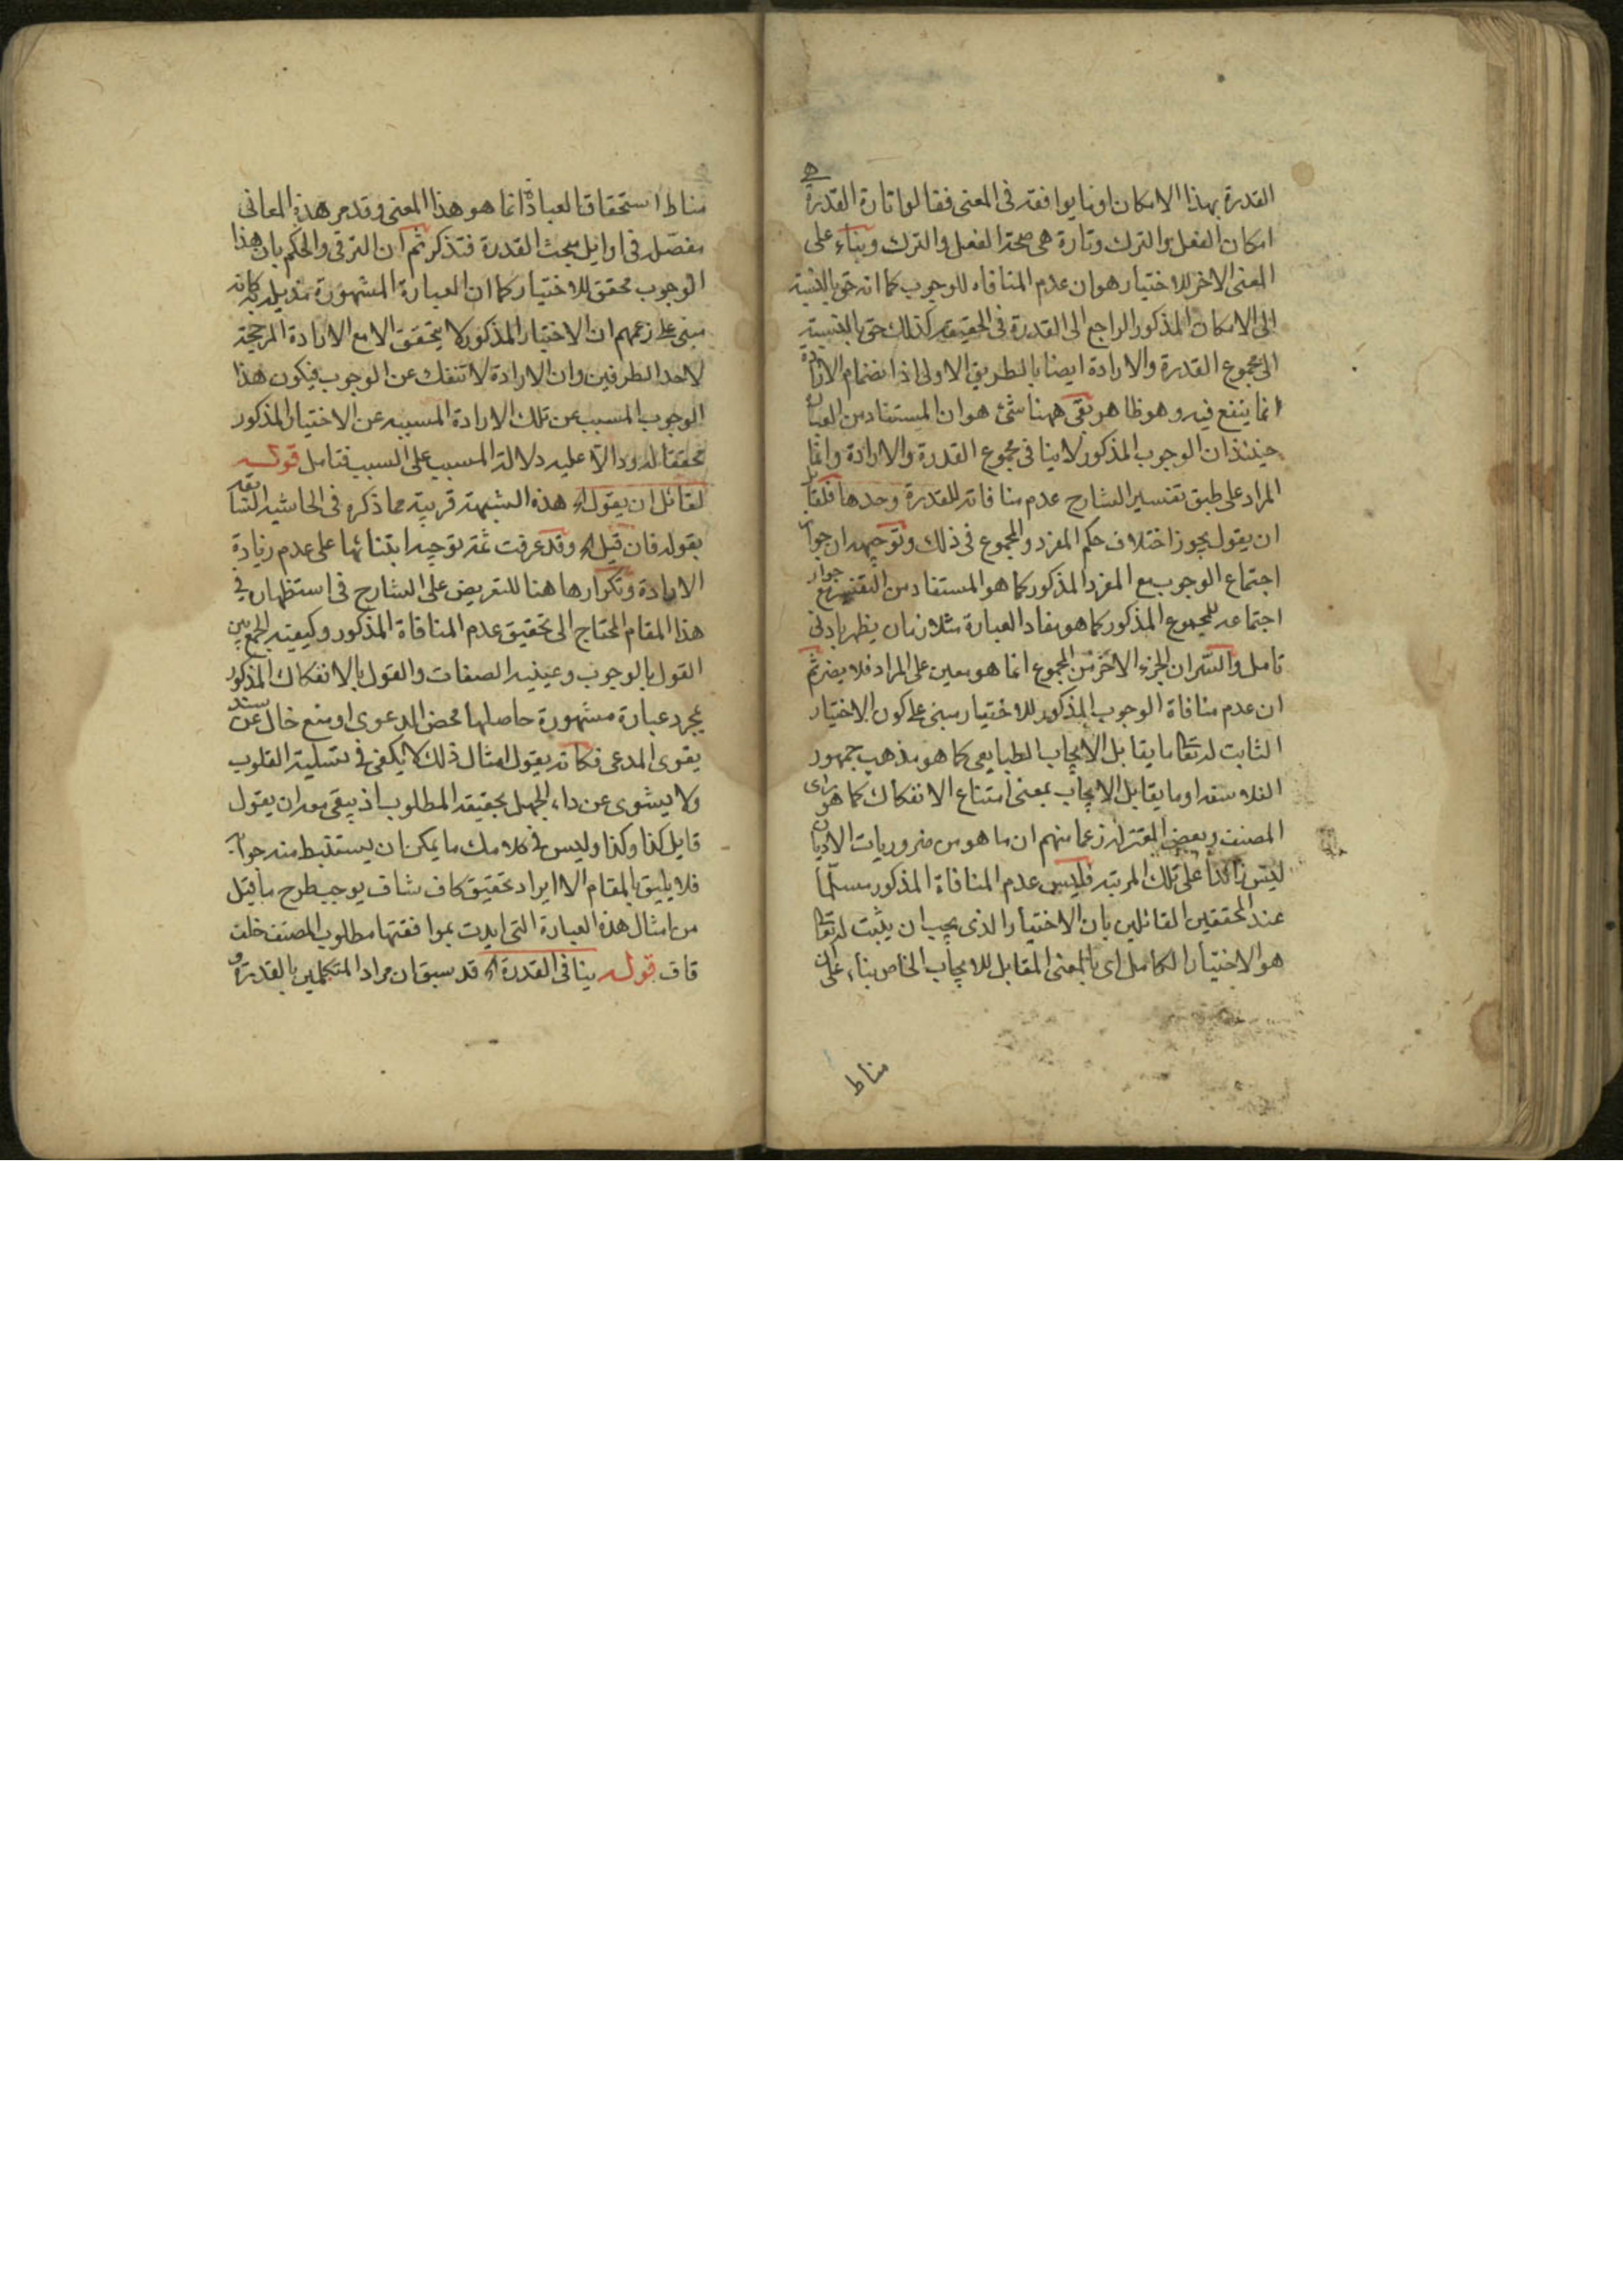 القدرة بهذا الامكان او بما يوافقه فى المعنى فقالوا تارة القدرة
امكان الفعل والترك وتارة هى صحة الفعل والترك وبناء على
المعنى الاخر للاختيار هو ان عدم المنافاه للوجوب كما انه حق بالنسبة
الى الامكان المذكور الراجع الى القدرة فى الحقيقه كذلك حق بالنسبة
الى مجموع القدرة والارادة ايضا بالطريق الاولى اذ انضمام الارادة
انما ينفع فيه وهو ظاهر بقى ههنا شئ هو ان المستفاد من العبارة
حينئذ ان الوجوب المذكور لا ينافى مجموع القدرة والارادة وانما
المراد على طبق تفسير الشارح عدم منافاته للقدرة وحدها فلقائل
ان يقول يجوز اختلاف حكم المفرد والمجموع فى ذلك وتوجيهه ان جواز
اجتماع الوجوب مع المفرد المذكور كما هو المستفاد من التفسير مع جواز
اجتماعه للمجموع المذكور كما هو مفاد العبارة متلازمان يظهر بادنى
تامل والسر ان الجزء الاخر من المجموع انما هو معين على المراد فلا يضر ثم
ان عدم منافاة الوجوب المذكور للاختيار مبنى على كون الاختيار
الثابت له تعا ما يقابل الايجاب الطبايعى كما هو مذهب جمهور
الفلاسفه او ما يقابل الايجاب بمعنى امتناع الانفكاك كما هو راى
المصنف وبعض المعتزلة زعما منهم ان ما هو من ضروريات الاديان
ليس زائدا على تلك المرتبه فليس عدم المنافاة المذكور مسلما
عند المحققين القائلين بان الاختيار الذى يجب ان يثبت له تعا
هو الاختيار الكامل اى بالمعنى المقابل للايجاب الخاص بناء على ان
مناط
مناط استحقاق العبادة انما هو هذا المعنى وقد مر هذه المعانى
مفصل فى اوايل مبحث القدرة فتذكر ثم ان الترقى والحكم بان هذا
الوجوب محقق للاختيار كما ان العبارة المشهورة كانه
مبنى على زعمهم ان الاختيار المذكور لا يتحقق الا مع الارادة المرجحة
لاحد الطرفين وان الارادة لا تنفك عن الوجوب فيكون هذا
الوجوب المسبب عن تلك الارادة المسببه عن الاختيار المذكور
محققا له ودالا عليه دلالة المسبب على السبب فتامل قوله
لقائل ان يقول اه هذه الشبهة قريبة مما ذكره فى الحاشيه السابقه
بقوله فان قيل اه وقد عرفت ثمة توجيه ابتنائها على عدم زيادة
الارادة وتكرارها هنا للتعريض على الشارح فى استظهاره فى
هذا المقام المحتاج الى تحقيق عدم المنافاة المذكور وكيفيه الجمع بين
القول بالوجوب وعينيه الصفات والقول بالانفكاك المذكور
بمجرد عبارة مشهورة حاصلها محض الدعوى او منع خال عن سند
يقوى المدعى فكانه يقول امثال ذلك لا يكفى فى تسلية القلوب
ولا يشوى عن داء الجهل بحقيقه المطلوب اذ يبقى بعد ان يقول
قايل كذا وكذا وليس فى كلامك ما يمكن ان يستنبط منه جوابه
فلا يليق بالمقام الا ايراد تحقيق كاف شاف يوجب طرح ما قيل
من امثال هذه العبارة التى ايدت بموافقتها مطلوب المصنف خلف
قاف قوله ينافى القدرة اه قد سبق ان مراد المتكلمين بالقدرة